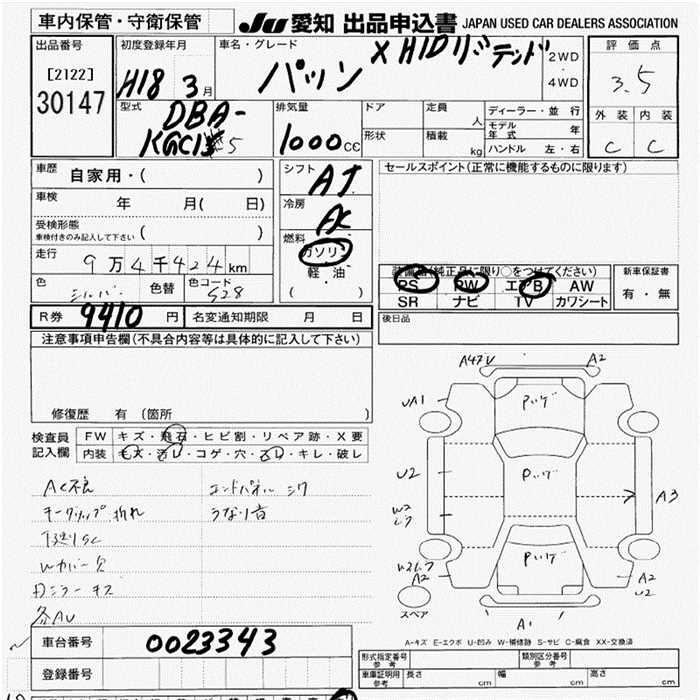 車内保管・守衛保管
JU 愛知 出品申込書 JAPAN USED CAR DEALERS ASSOCIATION
出品番号
[2122]
30147
初度登録年月
H18 3月
車名・グレード
パッソ X HIDリミテッド
2WD
4WD
評価点
3.5
外装 内装
C C
型式
DBA-
KGC15
排気量
1000cc
ドア
形状
定員 人
積載 kg
ディーラー・並行
モデル年式 年
ハンドル 左・右
車歴
自家用・( )
車検
年 月( 日)
受検形態
車検付きのみ記入して下さい ( )
走行
9万4千424km
色
シルバー
色替
色コード
S28
シフト
AT
冷房
AC
燃料
ガソリン
軽・油
( )
セールスポイント(正常に機能するものに限ります)
装備品(純正品に限り○をつけてください)
PS PW エアB AW
SR ナビ TV カワシート
新車保証書
有・無
後日品
R券 9410円
名変通知期限 月 日
注意事項申告欄(不具合内容等は具体的に記入して下さい)
修復歴 有(箇所 )
検査員
記入欄
FW キズ・飛石・ヒビ割・リペア跡・X要
内装 キズ・汚レ・コゲ・穴・スレ・キレ・破レ
AC不良
エンドパネル シワ
キーグリップ折れ
うなり音
下廻りSC
Wカバー欠
Dミラーキズ
各AU
A4ヌV A2
UA1
Pハゲ
U2
Pハゲ
A3
Pハゲ
A2
A2
U2
スペア
A1
A-キズ E-エクボ U-凹み W-補修跡 S-サビ C-腐食 XX-交換済
車台番号
0023343
登録番号
形式指定番号 参考
類別区分番号 参考
車庫証明用 参考
長さ cm
幅 cm
高さ cm